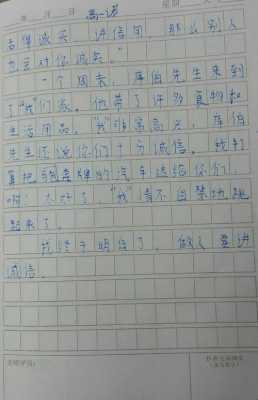 年 月 日 星期
高一诺
品得诚实 讲信用,那么别人
也会对你诚实。”
一个周末,库伯先生来到
了“我”们家。他带了许多食物和
生活用品。“我”非常高兴,库伯
先生还说你们十分诚信。我打
算把牌的汽车送给你们,
啊!太好了,“我”情不自禁地跳
起来了。
我终于明白了,做人要讲
诚信。